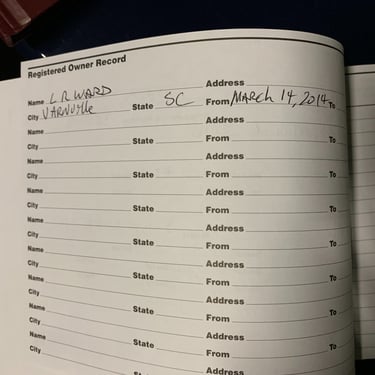 Registered Owner Record
Name LR WARD Address
City VARNVille State SC From MARCH 14, 2014 To
Name Address
City State From To
Name Address
City State From To
Name Address
City State From To
Name Address
City State From To
Name Address
City State From To
Name Address
City State From To
Name Address
City State From To
Name Address
City State From